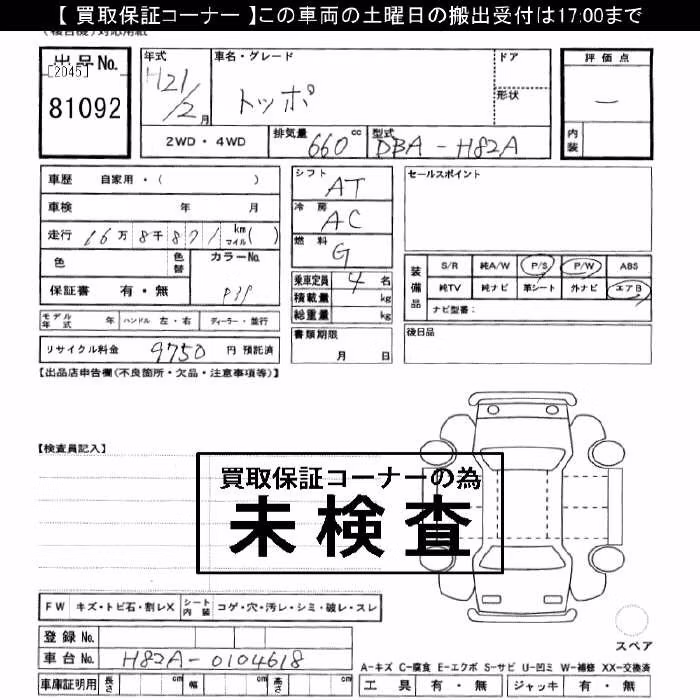 【 買取保証コーナー 】この車両の土曜日の搬出受付は17:00まで
出品No. [2045] 81092
年式 H21/2月
車名・グレード トッポ
ドア
形状
評価点 —
内装
2WD・4WD 排気量 660 cc 型式 DBA-H82A
車歴 自家用・( )
車検 年 月
走行 16万8千871 km マイル( )
色 色替 カラーNo. P39
保証書 有・無
シフト AT
冷房 AC
燃料 G
乗車定員 4 名
積載量 kg
総重量 kg
書類期限 月 日
セールスポイント
装備品 S/R 純A/W P/S P/W ABS
純TV 純ナビ 革シート 外ナビ エアB
ナビ型番:
後日品
モデル年式 年 ハンドル 左・右 ディーラー・並行
リサイクル料金 9750 円 預託済
【出品店申告欄(不良箇所・欠品・注意事項等)】
【検査員記入】
買取保証コーナーの為
未検査
FW キズ・トビ石・割レX シート内装 コゲ・穴・汚レ・シミ・破レ・スレ
登録 No.
車台 No. H82A-0104618
車庫証明用 長さ cm 幅 cm 高さ cm
スペア
A-キズ C-腐食 E-エクボ S-サビ U-凹ミ W-補修 XX-交換済
工具 有・無 ジャッキ 有・無